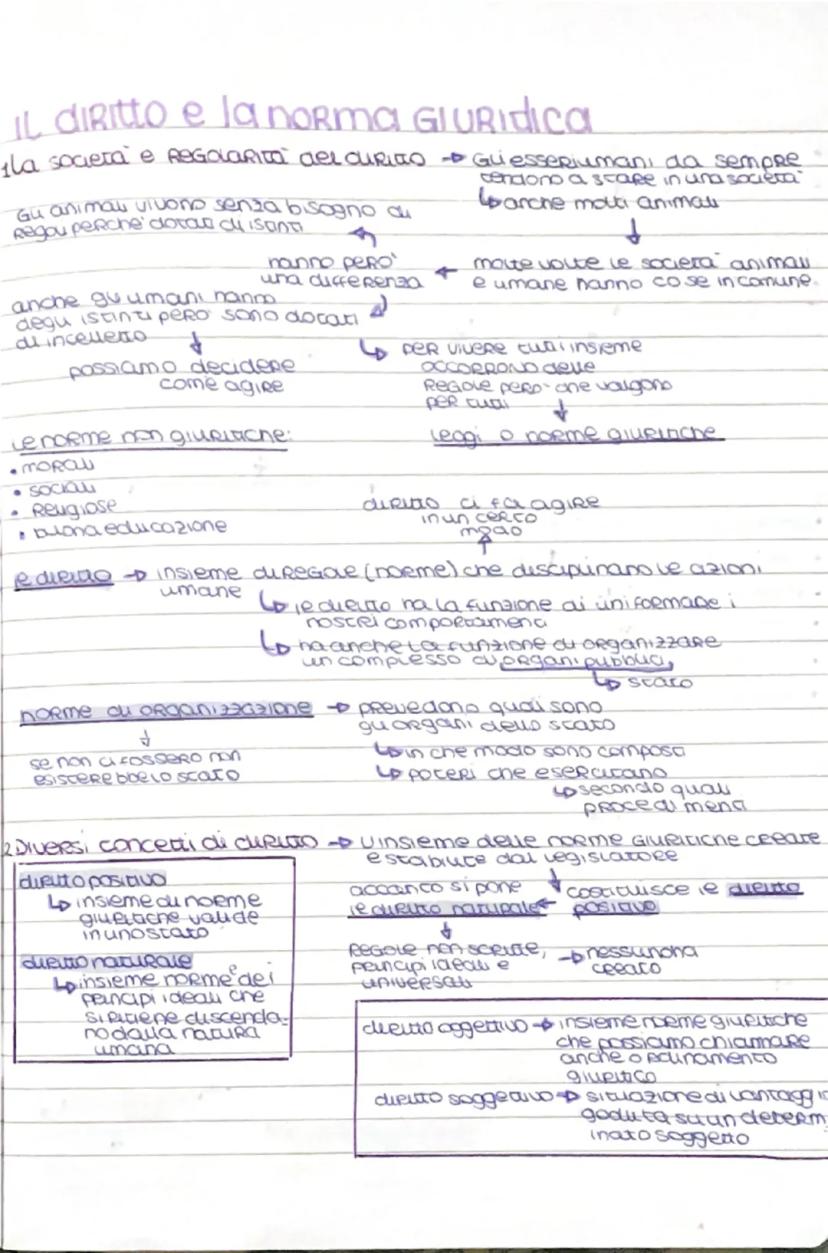 IL DIRITTO e la NORMA GIURIDICA
1 La società e REGOLARITÀ del DIRITTO → Gli esseri umani da sempre
tendono a stare in una società
↳ anche molti animali
Gli animali vivono senza bisogno di
regole perchè dotati di istinti
molte volte le società animali
e umane hanno cose in comune
hanno però
una differenza
anche gli umani hanno
degli istinti però sono dotati
di intelletto
possiamo decidere
come agire
↳ PER VIVERE tutti insieme
occorrono delle
REGOLE però che valgono
per tutti
Leggi o norme giuridiche
Le norme non giuridiche:
• MORALI
• SOCIALI
• RELIGIOSE
• buona educazione
diritto ci fa agire
in un certo
modo
il diritto → insieme di REGOLE (norme) che disciplinano le azioni
umane
↳ il diritto ha la funzione di uniformare i
nostri comportamenti
↳ ha anche la funzione di organizzare
un complesso di organi pubblici,
↳ stato
norme di ORGANIZZAZIONE → prevedono quali sono
gli organi dello stato
↳ in che modo sono composti
↳ poteri che esercitano
↳ secondo quali
procedimenti
se non ci fossero non
esisterebbe lo stato
2 Diversi concetti di diritto → L'insieme delle norme giuridiche create
e stabilite dal legislatore
costituisce il diritto
positivo
accanto si pone
il diritto naturale
REGOLE non scritte,
principi ideali e
universali
→ nessuno ha
creato
diritto positivo
↳ insieme di norme
giuridiche valide
in uno stato
diritto naturale
↳ insieme norme e dei
principi ideali che
si ritiene discenda-
no dalla natura
umana
diritto oggettivo → insieme norme giuridiche
che possiamo chiammare
anche ordinamento
giuridico
diritto soggettivo → situazione di vantaggio
goduta su un determ
inato soggetto